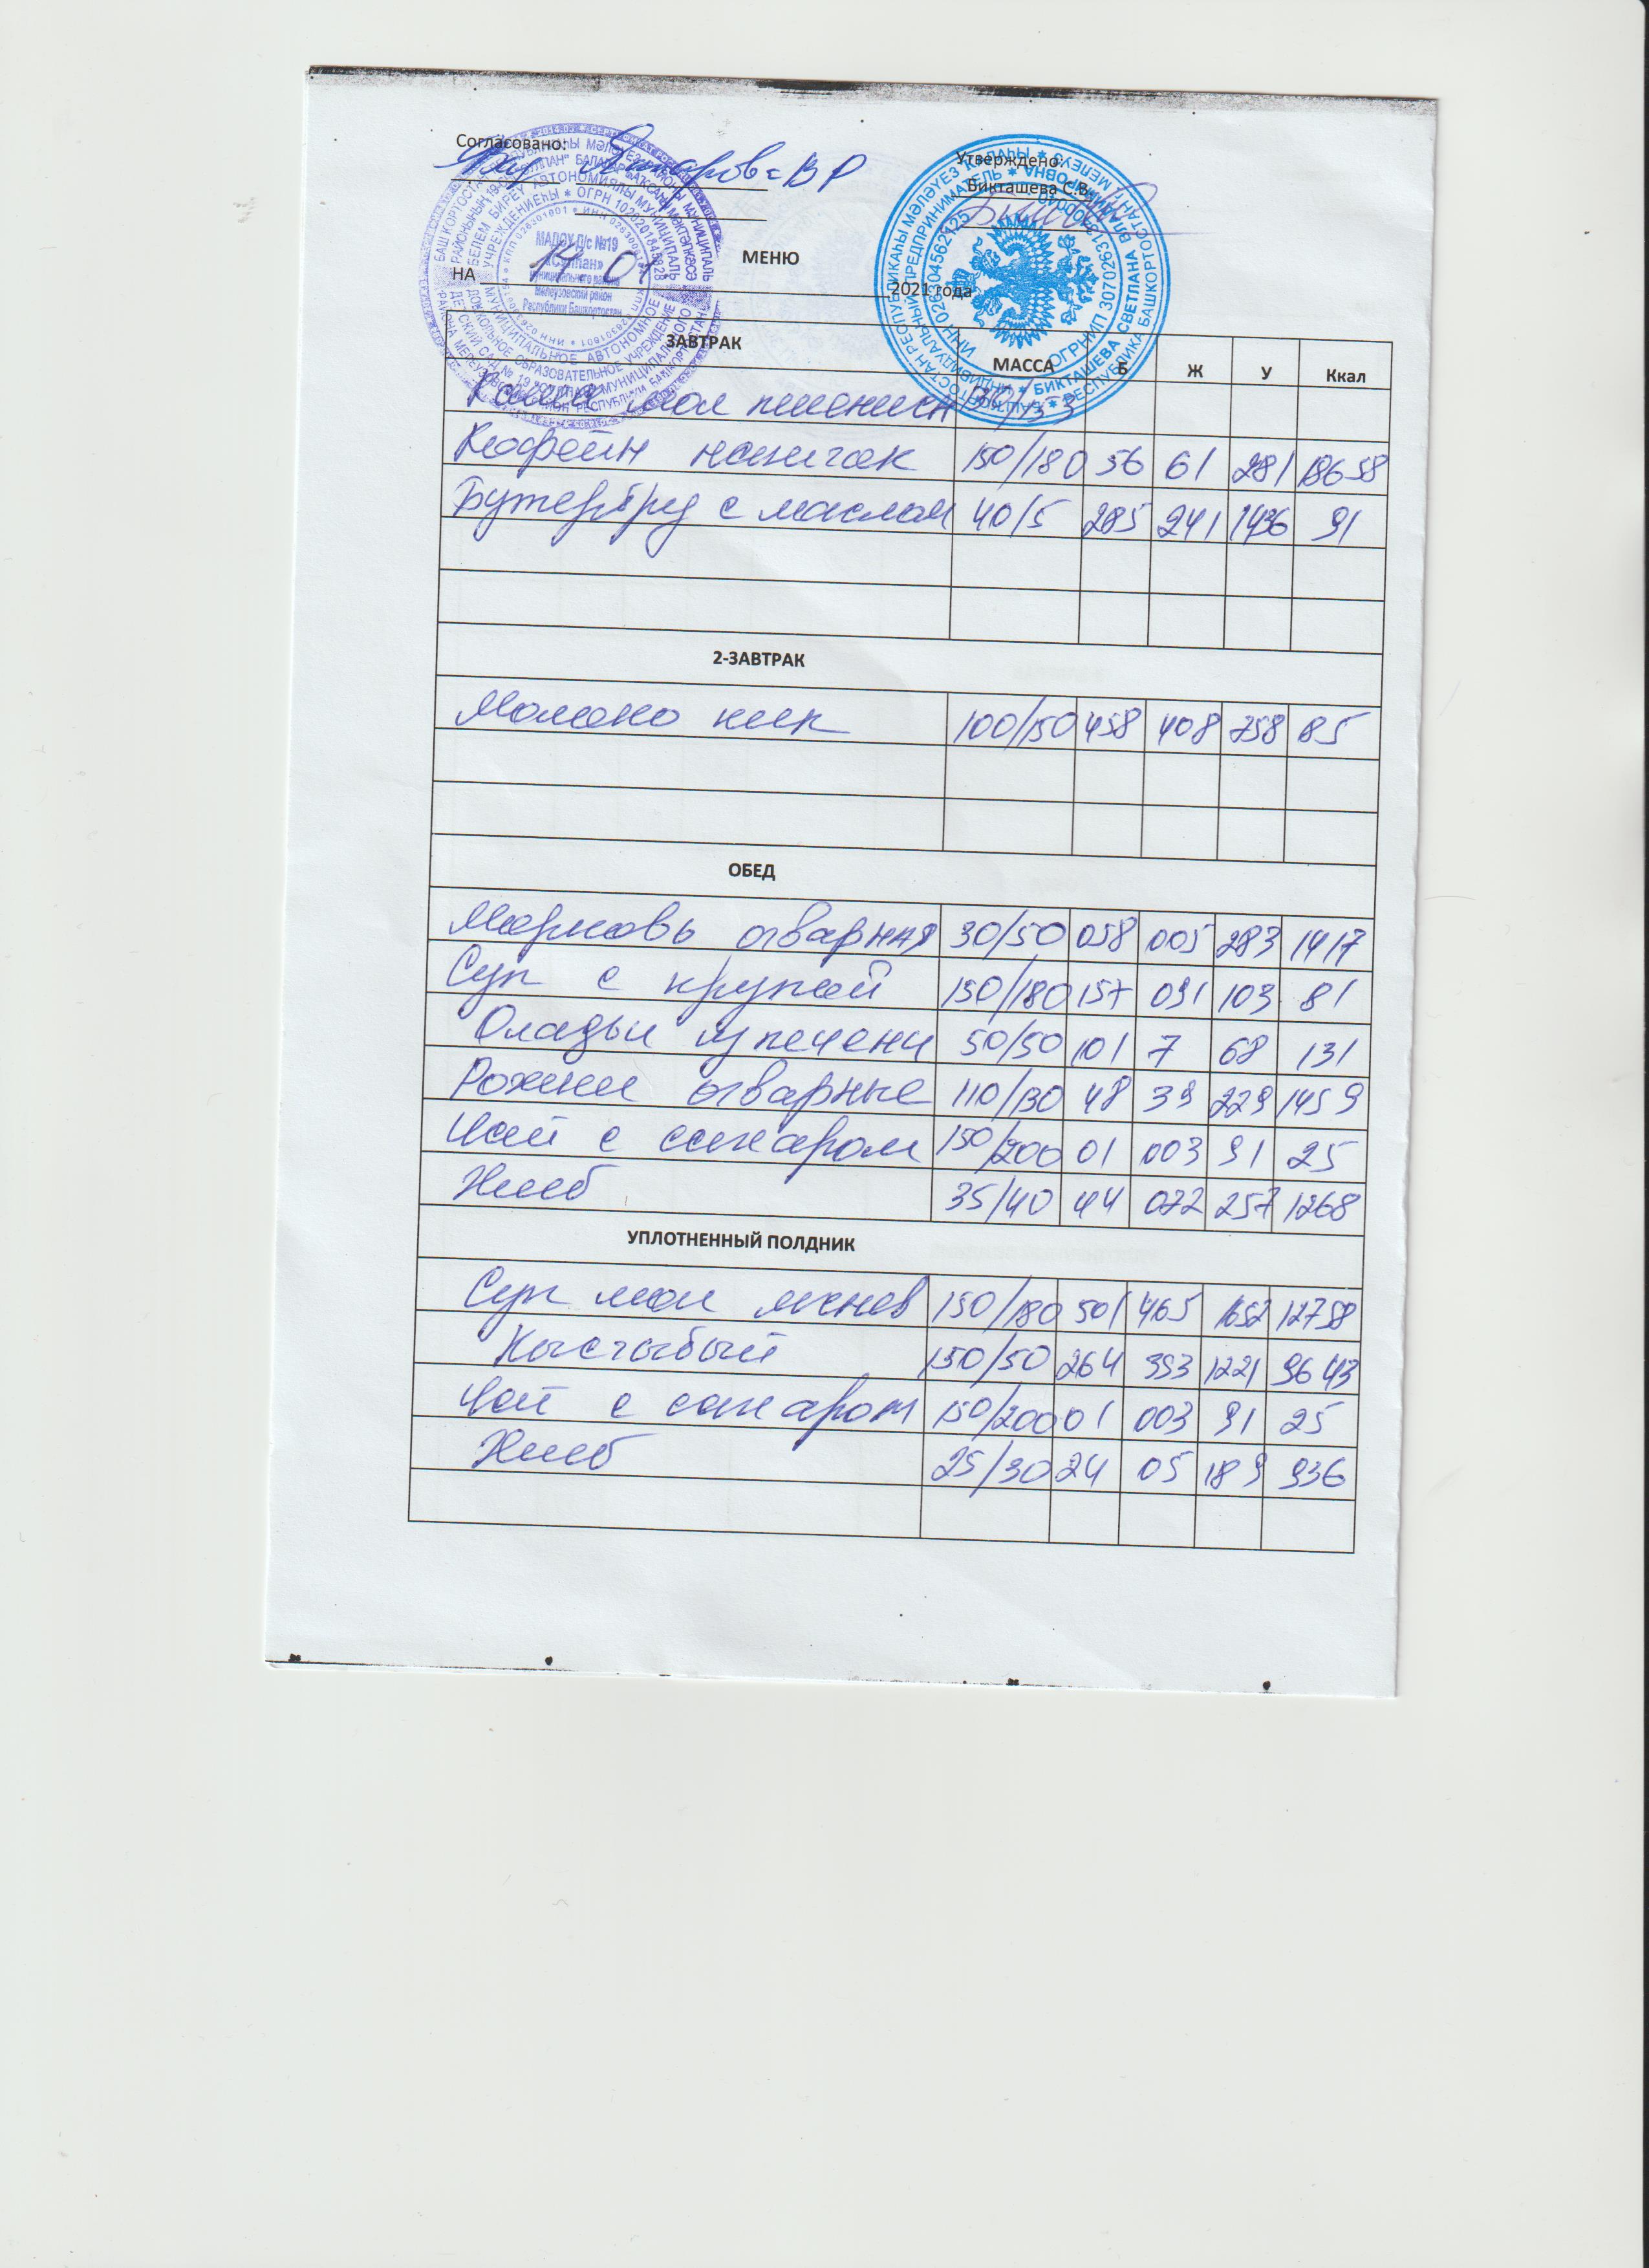 Согласовано:
Утверждено:
Бикташева С.В.
МЕНЮ
НА 14 01 2021 года
МАДОУ Д/с №19
муниципального района
Мелеузовский район
Республики Башкортостан
БИКТАШЕВА СВЕТЛАНА
ЗАВТРАК МАССА Б Ж У Ккал
Каша мол
Кофейн напиток 150/180 56 61 281 18658
Бутерброд с маслом 40/5 285 241 1436 91
2-ЗАВТРАК
Молоко кип 100/150 458 408 758 85
ОБЕД
Морковь отварная 30/50 058 005 283 1417
Суп с крупой 150/180 157 091 103 81
Оладьи из печени 50/50 101 7 68 131
Рожки отварные 110/130 48 39 229 1459
Чай с сахаром 150/200 01 003 91 25
Хлеб 35/40 44 072 257 1268
УПЛОТНЕННЫЙ ПОЛДНИК
Суп мол 150/180 501 465 1652 12758
Кыстыбый 150/50 264 393 1221 9643
Чай с сахаром 150/200 01 003 91 25
Хлеб 25/30 24 05 189 936